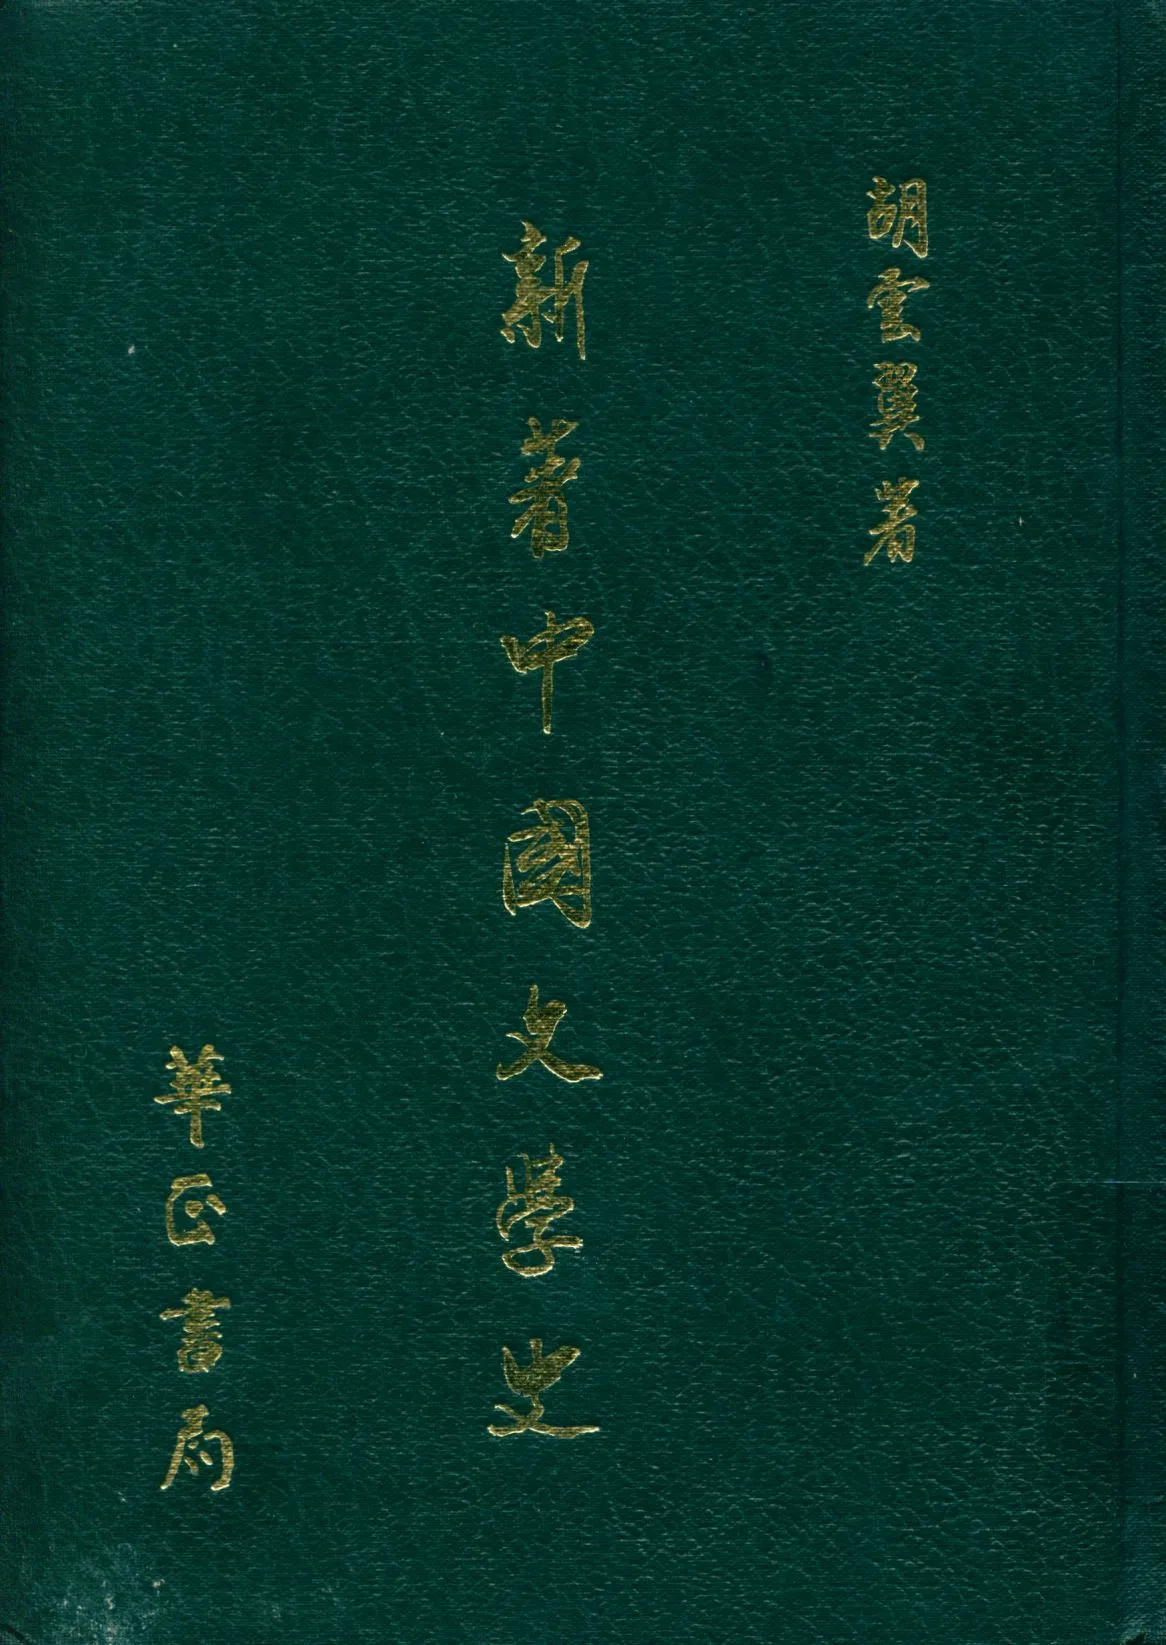 胡雲翼著
新著中國文學史
華正書局